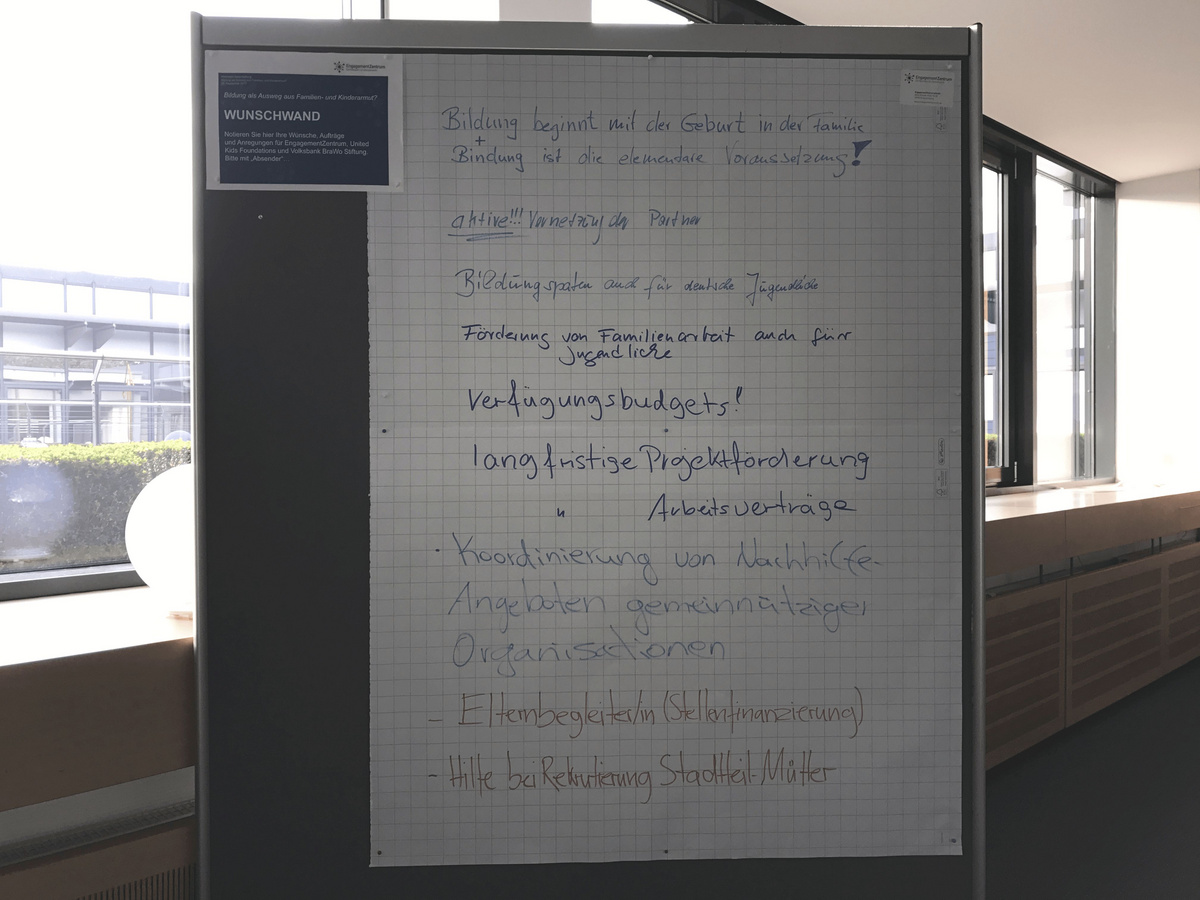 EngagementZentrum
Bildung als Ausweg aus Familien- und Kinderarmut?
WUNSCHWAND
Notieren Sie hier Ihre Wünsche, Aufträge
und Anregungen für EngagementZentrum, United
Kids Foundations und Volksbank BraWo Stiftung.
Bitte mit „Absender“...
EngagementZentrum
Bildung beginnt mit der Geburt in der Familie
+
Bindung ist die elementare Voraussetzung!
aktive!!! Vernetzung der Partner
Bildungspaten auch für deutsche Jugendliche
Förderung von Familienarbeit auch für
Jugendliche
Verfügungsbudgets!
langfristige Projektförderung
" Arbeitsverträge
· Koordinierung von Nachhilfe-
Angeboten gemeinnütziger
Organisationen
- Elternbegleiter/in (Stellenfinanzierung)
- Hilfe bei Rekrutierung Stadtteil-Mütter